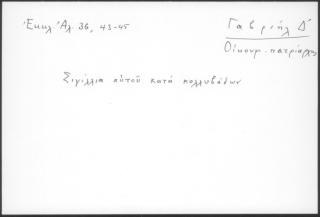 Ἐκκλ. Ἀλ. 36, 43-45
Γαβριήλ Δ΄
Οἰκουμ. πατριάρχης
Σιγίλλια αὐτοῦ κατά κολλυβάδων